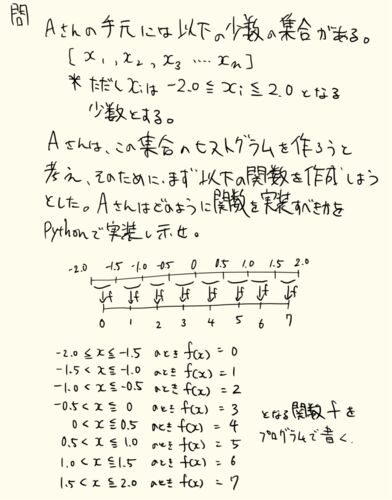 問
Aさんの手元には以下の少数の集合がある。
[ x₁, x₂, x₃ ‥‥ xn ]
* ただし xi は -2.0 ≦ xi ≦ 2.0 となる
少数とする。
Aさんは、この集合のヒストグラムを作ろうと
考え、そのために、まず以下の関数を作成しよう
とした。Aさんはどのように関数を実装すべきかを
Pythonで実装し示せ。
-2.0 -1.5 -1.0 -0.5 0 0.5 1.0 1.5 2.0
↓f ↓f ↓f ↓f ↓f ↓f ↓f ↓f
0 1 2 3 4 5 6 7
-2.0 ≦ x ≦ -1.5 のとき f(x) = 0
-1.5 < x ≦ -1.0 のとき f(x) = 1
-1.0 < x ≦ -0.5 のとき f(x) = 2
-0.5 < x ≦ 0 のとき f(x) = 3
0 < x ≦ 0.5 のとき f(x) = 4
0.5 < x ≦ 1.0 のとき f(x) = 5
1.0 < x ≦ 1.5 のとき f(x) = 6
1.5 < x ≦ 2.0 のとき f(x) = 7
となる関数 f を
プログラムで書く.